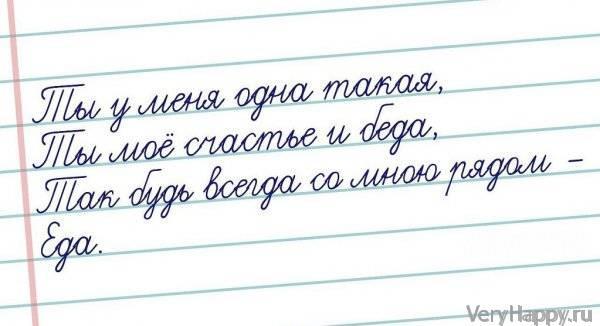 Ты у меня одна такая,
Ты моё счастье и беда,
Так будь всегда со мною рядом –
Еда.
VeryHappy.ru